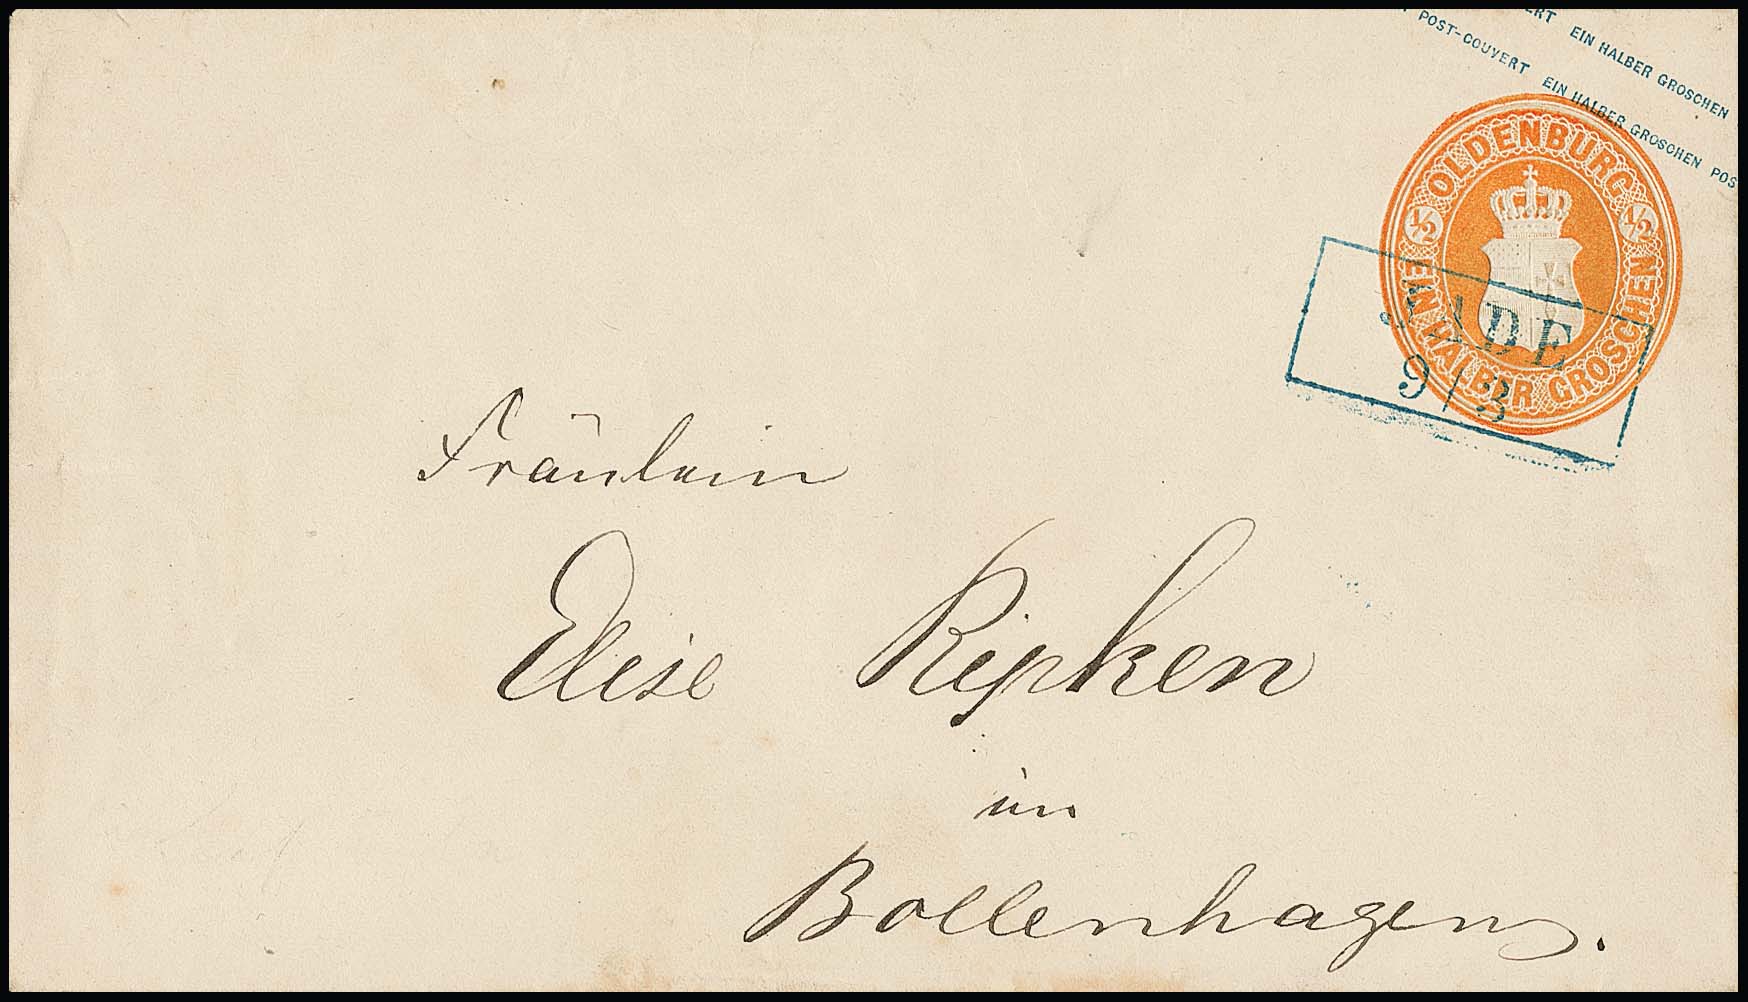 ERT EIN HALBER GROSCHEN
POST-COUVERT EIN HALBER GROSCHEN POS
OLDENBURG
½ ½
EIN HALBER GROSCHEN
JADE
9/3
Fräulein
Elise Ripken
in
Bollenhagen.